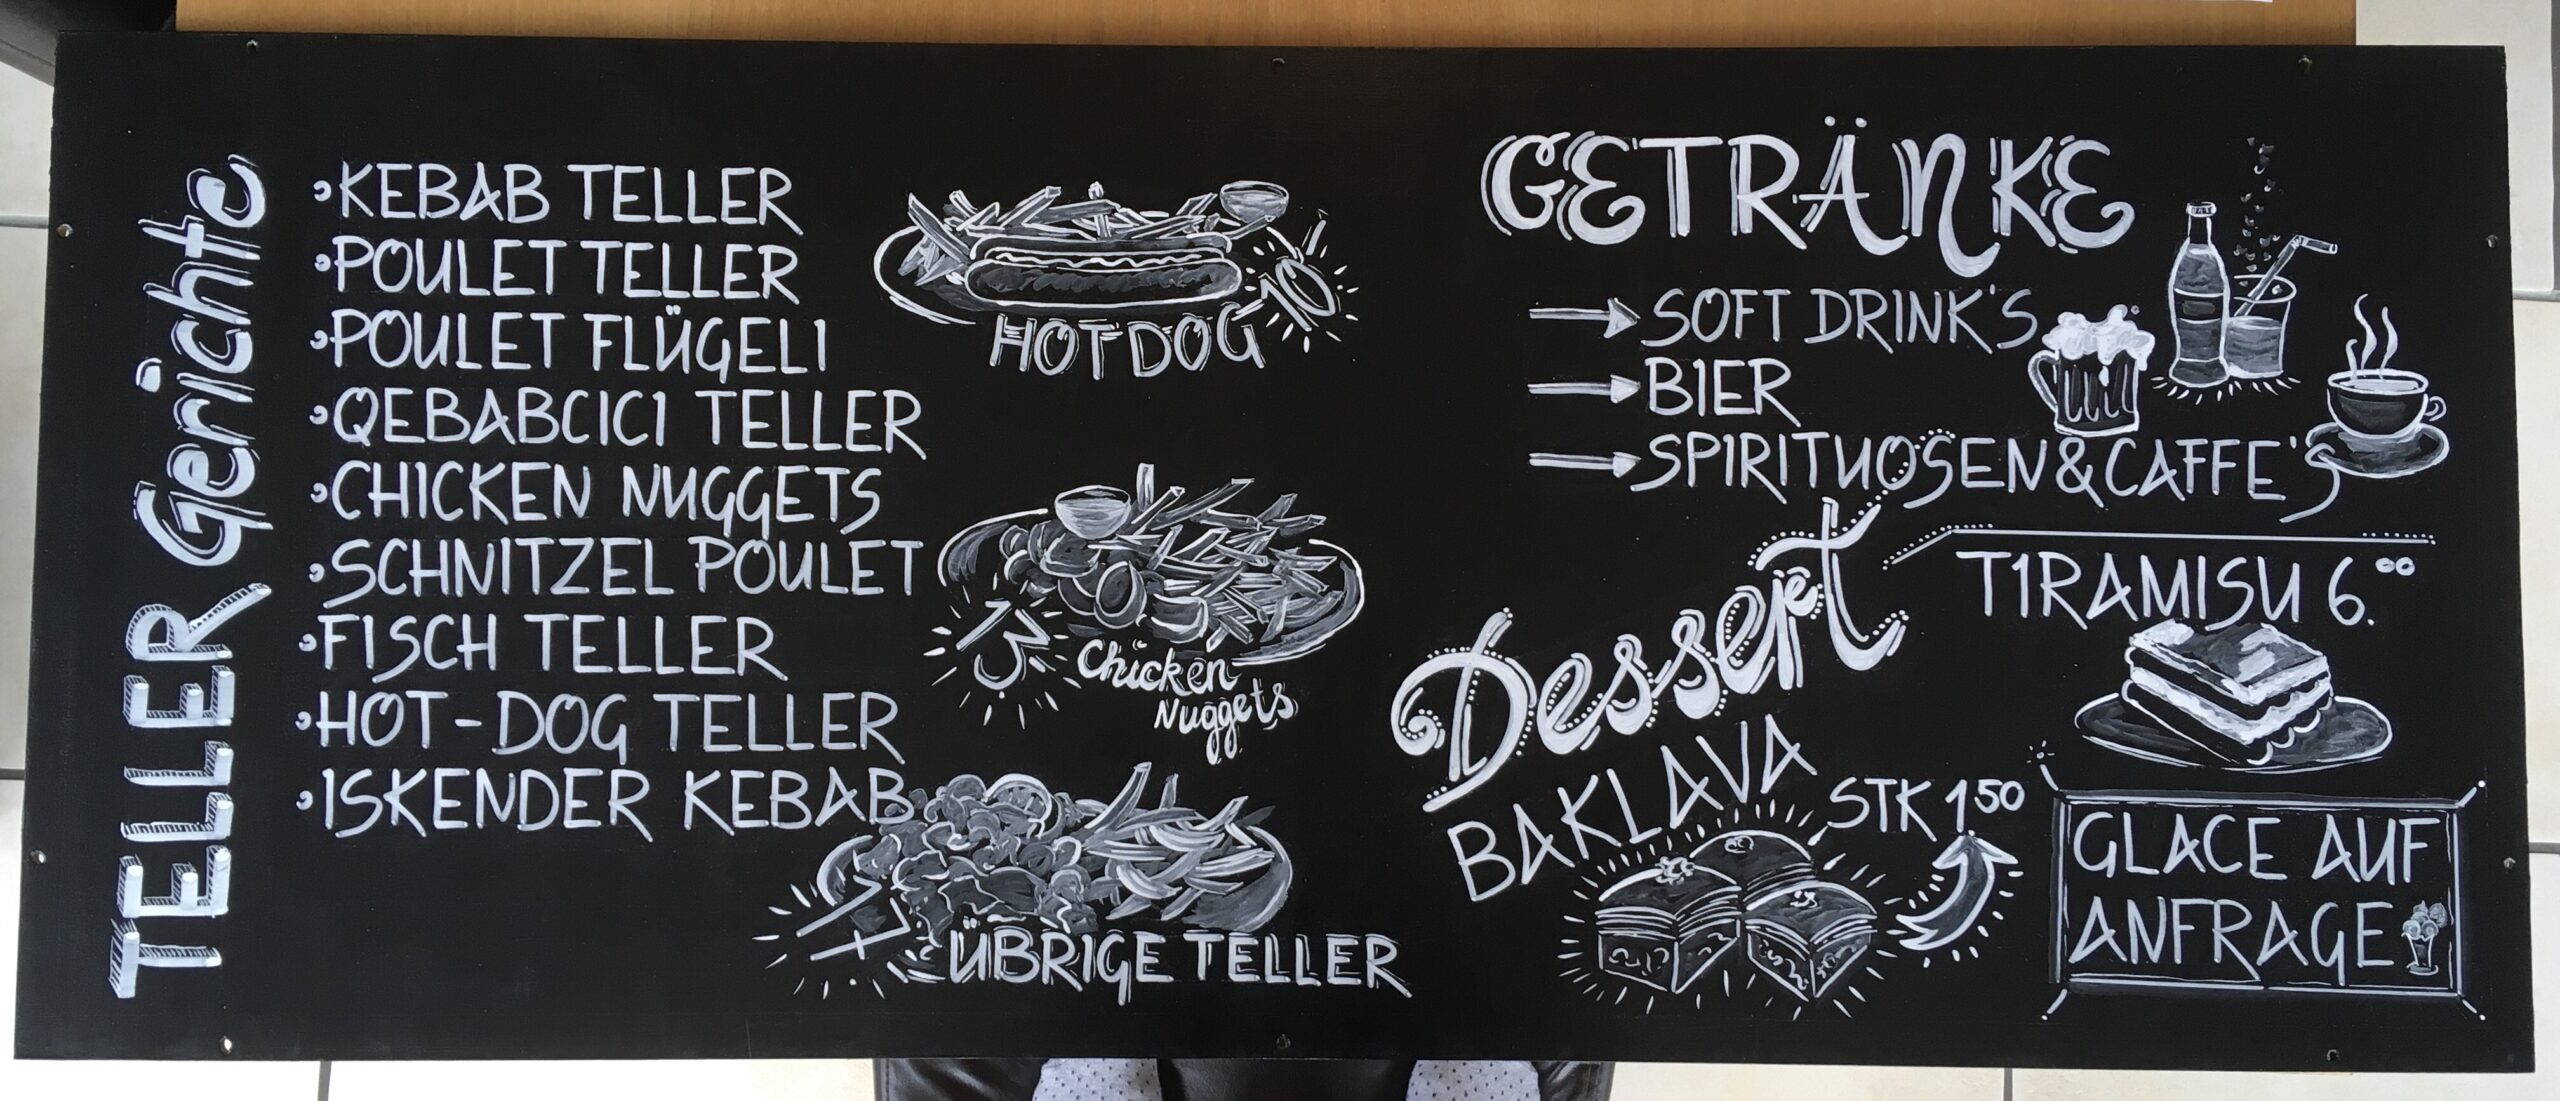 TELLER Gerichte
KEBAB TELLER
POULET TELLER
POULET FLÜGELI
QEBABCICI TELLER
CHICKEN NUGGETS
SCHNITZEL POULET
FISCH TELLER
HOT-DOG TELLER
ISKENDER KEBAB
HOT DOG 10
13 Chicken
Nuggets
17 ÜBRIGE TELLER
GETRÄNKE
SOFT DRINK'S
BIER
SPIRITUOSEN & CAFFE'S
Dessert
TIRAMISU 6.00
BAKLAVA
STK 1 50
GLACE AUF
ANFRAGE